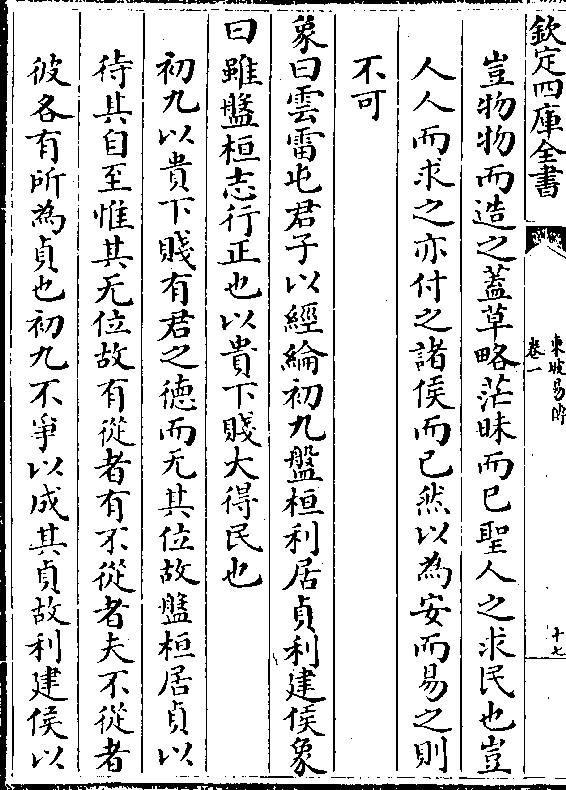 欽定四庫全書
東坡易傳
卷一
十七
豈物物而造之蓋草略茫昧而已聖人之求民也豈
人人而求之亦付之諸侯而已然以為安而易之則
不可
象曰雲雷屯君子以經綸初九盤桓利居貞利建侯象
曰雖盤桓志行正也以貴下賤大得民也
初九以貴下賤有君之德而无其位故盤桓居貞以
待其自至惟其无位故有從者有不從者夫不從者
彼各有所為貞也初九不爭以成其貞故利建侯以